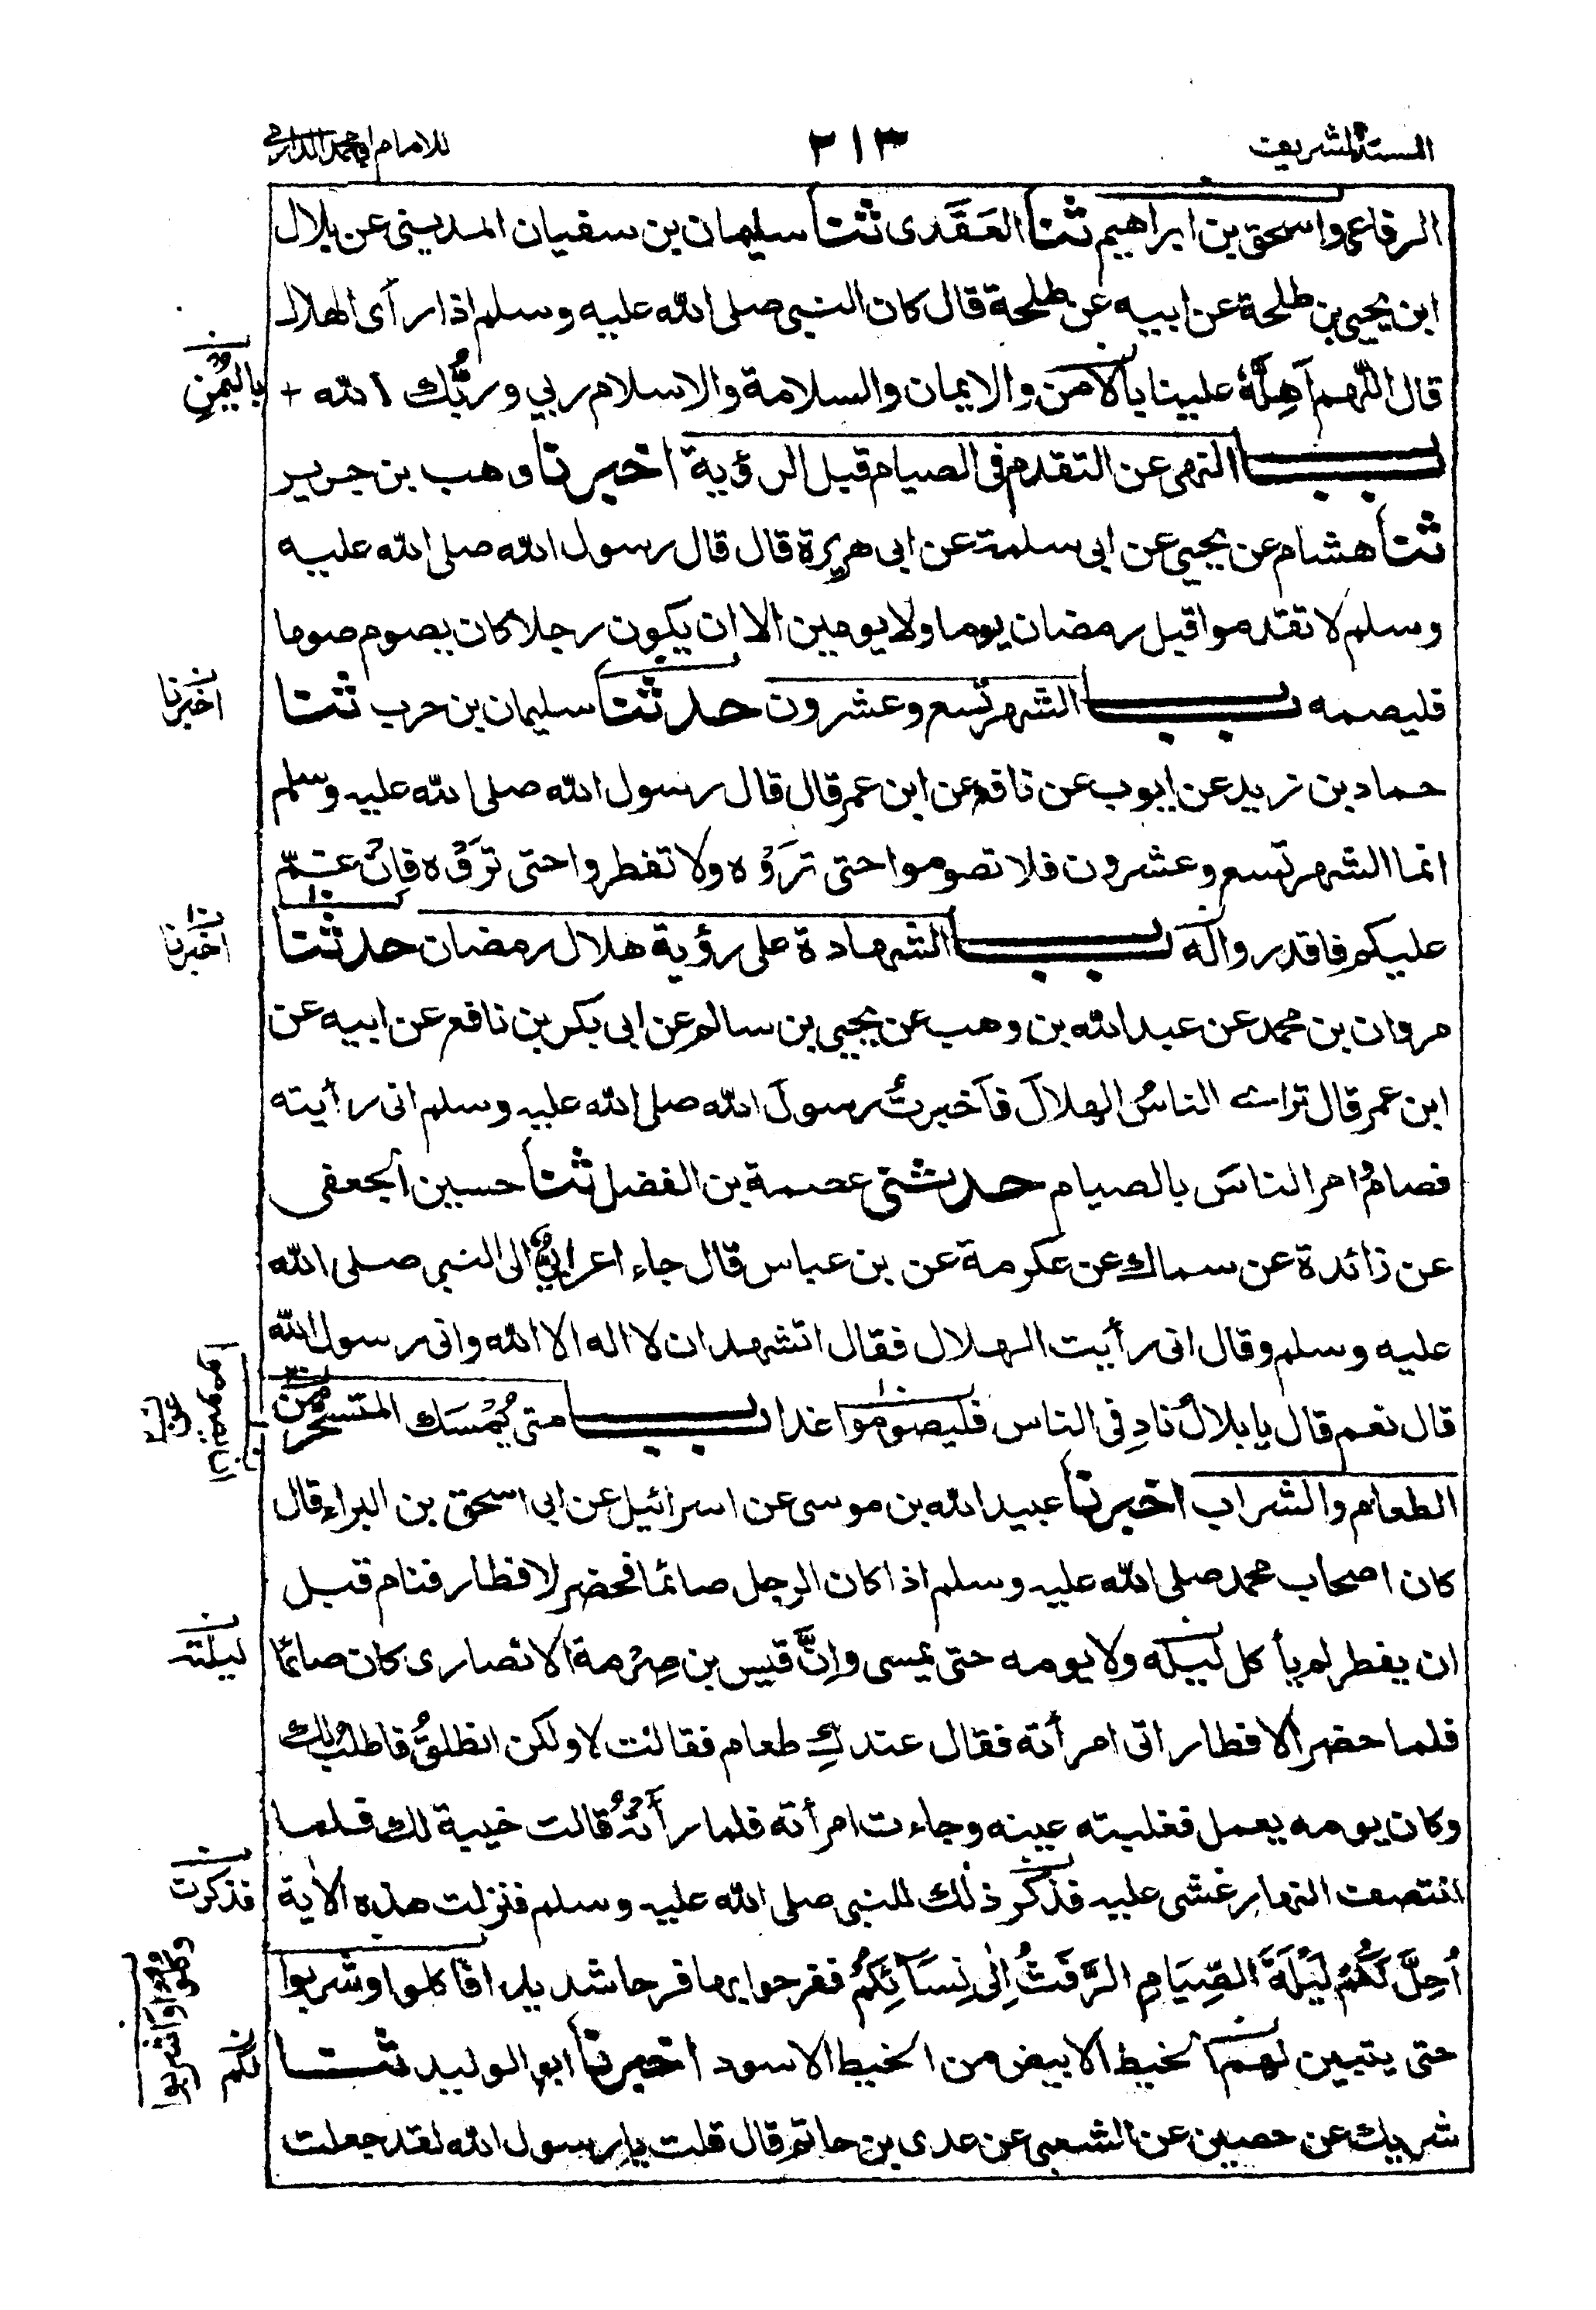 المسند الشريف ٢١٣ للامام ابي محمد الدارمي
الرفاعى واسحق بن ابراهيم ثنا العَقَدى ثنا سليمان بن سفيان المدينى عن بلال
ابن يحيى بن طلحة عن ابيه عن طلحة قال كان النبى صلى الله عليه وسلم اذا رأى الهلال
قال اللّهم اَهِلَّهٗ علينا بالامن والايمان والسلامة والاسلام ربي وربُّك الله +
باليُمْنِ
بــاب النهى عن التقدم فى الصيام قبل الرؤية اخبرنا وهب بن جرير
ثنا هشام عن يحيى عن ابى سلمة عن ابى هريرة قال قال رسول الله صلى الله عليه
وسلم لا تقدموا قبل رمضان يوما ولا يومين الا ان يكون رجلا كان يصوم صوما
فليصمه بــاب الشهر تسع وعشرون حدثنا سليمان بن حرب ثنا
اخبرنا
حماد بن زيد عن ايوب عن نافع عن ابن عمر قال قال رسول الله صلى الله عليه وسلم
انما الشهر تسع وعشرون فلا تصوموا حتى تَرَوْه ولا تفطروا حتى تَرَوْه فاِنْ غمّ
عليكم فاقدروا له بــاب الشهادة على رؤية هلال رمضان حدثنا
اخبرنا
مروان بن محمد عن عبد الله بن وهب عن يحيى بن سالم عن ابى بكر بن نافع عن ابيه عن
ابن عمر قال تراى الناسُ الهلالَ فاَخبرتُ رسولَ الله صلى الله عليه وسلم انى رأيته
فصام وامر الناسَ بالصيام حدثنى عصمة بن الفضل ثنا حسين الجعفى
عن زائدة عن سماك عن عكرمة عن بن عباس قال جاء اعرابيٌّ الى النبى صلى الله
عليه وسلم وقال انى رأيت الهلال فقال اتشهد ان لا اله الا الله وانى رسول الله
قال نعم قال يا بلالُ نادِ فى الناس فليصوموا غدا بــاب متى يُمْسَك المتسحّر من
الطعام والشراب اخبرنا عبيد الله بن موسى عن اسرائيل عن ابى اسحق بن البراء قال
كان اصحاب محمد صلى الله عليه وسلم اذا كان الرجل صائما فحضر الافطار فنام قبل
ان يفطر لم يأكل ليله ولا يومه حتى يمسى واِنَّ قيس بن صِرْمة الانصارى كان صائما
ليلته
فلما حضر الافطار اتى امرأته فقال عندكِ طعام فقالت لا ولكن انطلقُ فاطلبُ لك
وكان يومه يعمل فغلبته عينه وجاءت امرأته فلما رأَتْهُ قالت خيبة لك فلما
انتصف النهار غشى عليه فذكر ذلك للنبى صلى الله عليه وسلم فنزلت هذه الآية
فذكرت
اُحِلَّ لَكُمْ لَيْلَةَ الصِّيَامِ الرَّفَثُ اِلٰى نِسَآئِكُمْ ففرحوا بها فرحا شديدا فاكلوا وشربوا
حتى يتبين لهم الخيط الابيض من الخيط الاسود اخبرنا ابو الوليد ثنا
لكم
شريك عن حصين عن الشعبى عن عدى بن حاتم قال قلت يا رسول الله لقد جعلت